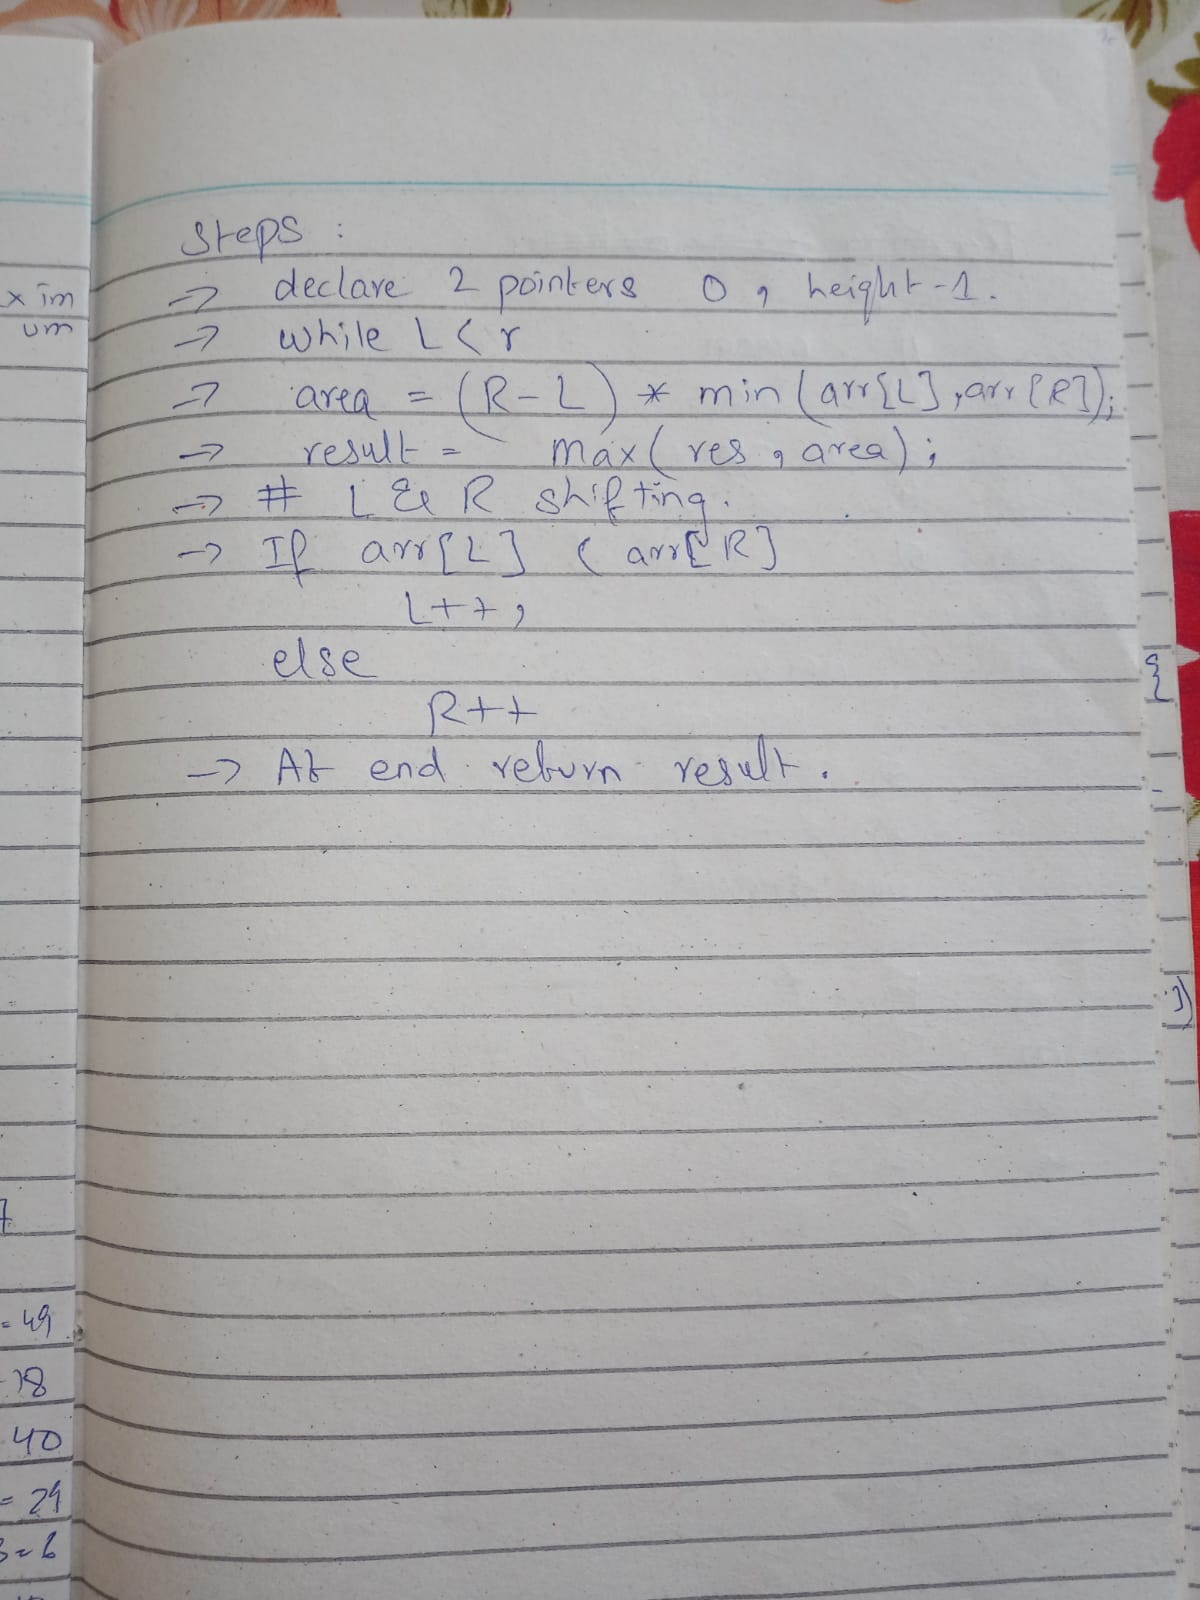 Steps :
-> declare 2 pointers 0 , height-1.
-> while L < r
-> area = (R-L) * min (arr[L] , arr[R]);
-> result = max( res , area) ;
-> # L & R shifting.
-> If arr[L] < arr[R]
L++ ,
else
R++
-> At end return result .
xim
um
= 49
18
40
= 24
3=6